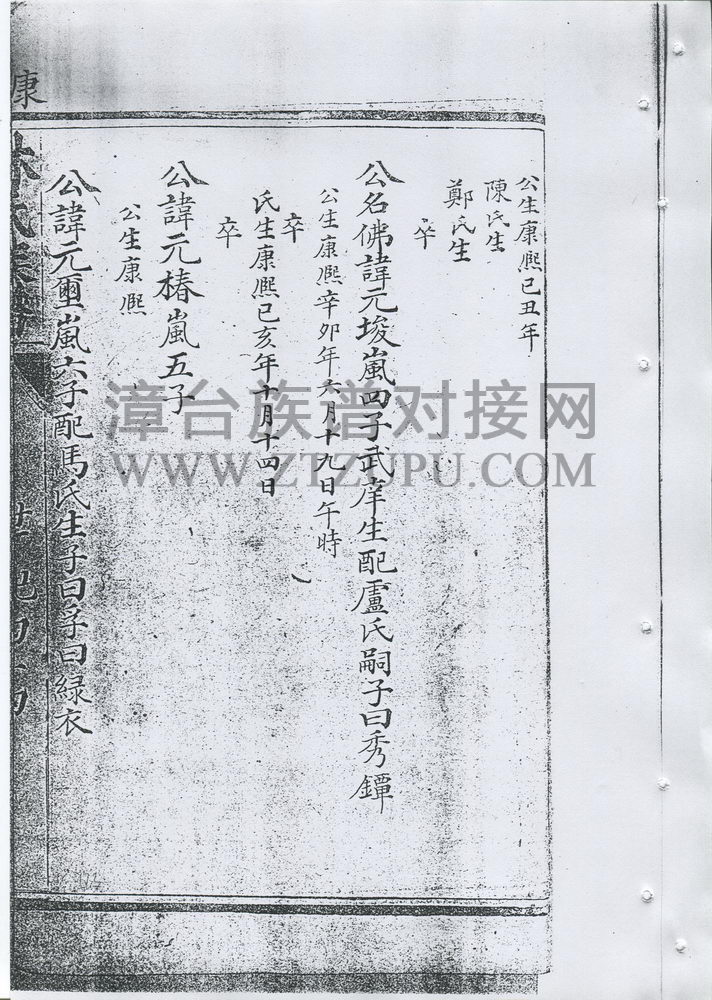 公生康熙己丑年
陳氏生
鄭氏生
卒
公名佛諱元埈嵐四子武庠生配盧氏嗣子曰秀鐔
公生康熙辛卯年六月十九日午時
卒
氏生康熙己亥年十月十四日
卒
公諱元椿嵐五子
公生康熙
公諱元璽嵐六子配馬氏生子曰孚曰緑衣
康
林氏
漳台族谱对接网
WWW.ZTZUPU.COM